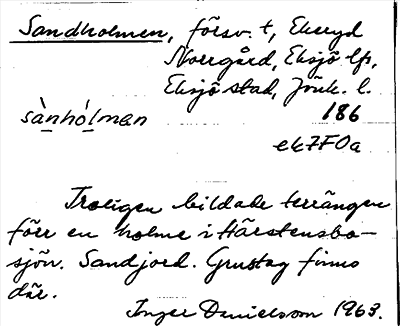 Sandholmen, försv. t, Ekeryd
Norrgård, Eksjö lfs,
Eksjö stad, Jönk. l.
sànhól̠mən 186
ek7F0a
Troligen bildade terrängen
förr en holme i Härstensbo-
sjön. Sandjord. Grustag finns
där.
Inger Danielsson 1963.